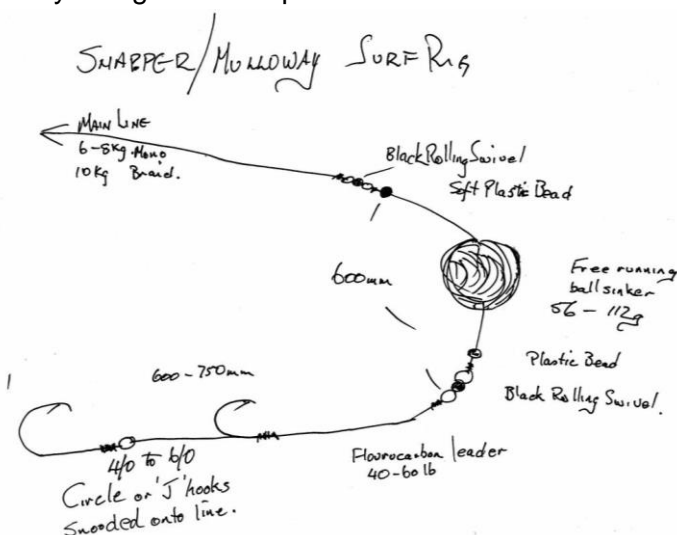 SNAPPER/MULLOWAY SURF RIG
MAIN LINE
6-8Kg Mono
10Kg Braid.
Black Rolling Swivel
Soft Plastic Bead
600mm
Free running
ball sinker
56 - 112g
Plastic Bead
Black Rolling Swivel.
600-750mm
Flourocarbon leader
40-60 lb
4/0 to 6/0
Circle or 'J' hooks
Snooded onto line.